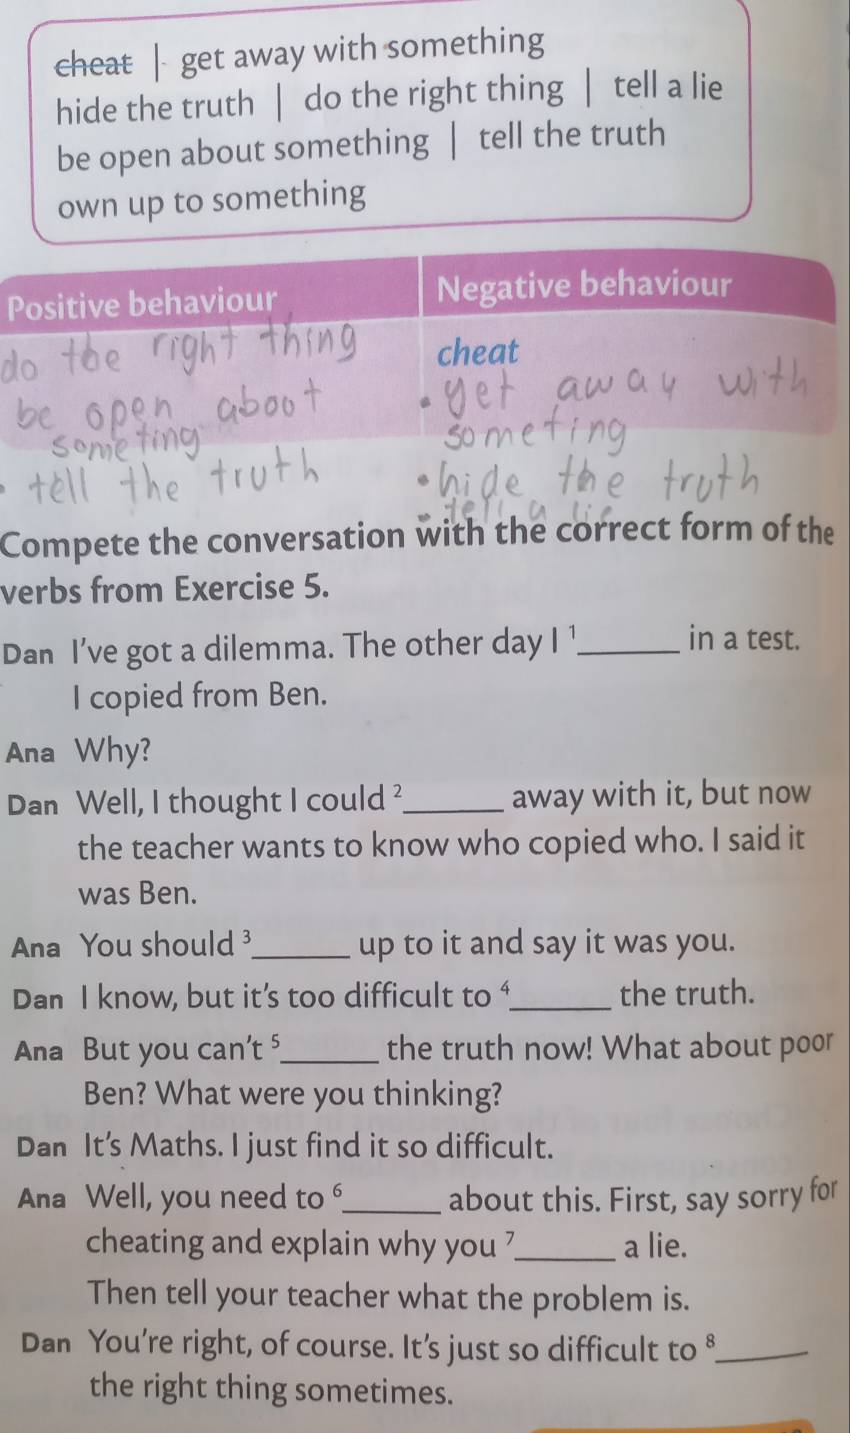 cheat | get away with something
hide the truth | do the right thing | tell a lie
be open about something | tell the truth
own up to something
Positive behaviour Negative behaviour
do the right thing cheat
be open aboot • get away with
someting someting
• tell the truth • hide the troth
• tell a lie
Compete the conversation with the correct form of the
verbs from Exercise 5.
Dan I've got a dilemma. The other day I ¹______ in a test.
I copied from Ben.
Ana Why?
Dan Well, I thought I could ²______ away with it, but now
the teacher wants to know who copied who. I said it
was Ben.
Ana You should ³______ up to it and say it was you.
Dan I know, but it's too difficult to ⁴______ the truth.
Ana But you can't ⁵______ the truth now! What about poor
Ben? What were you thinking?
Dan It's Maths. I just find it so difficult.
Ana Well, you need to ⁶______ about this. First, say sorry for
cheating and explain why you ⁷______ a lie.
Then tell your teacher what the problem is.
Dan You're right, of course. It's just so difficult to ⁸______
the right thing sometimes.